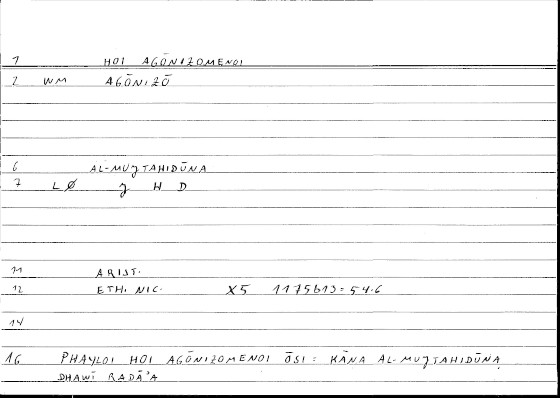 1 HOI AGŌNIZOMENOI
2 WM AGŌNIZŌ
6 AL-MUJTAHIDŪNA
7 LØ J H D
11 ARIST.
12 ETH. NIC. X5 1175b13=54.6
14
16 PHAYLOI HOI AGŌNIZOMENOI ŌSI : KĀNA AL-MUJTAHIDŪNA
DHAWĪ RADĀ'A